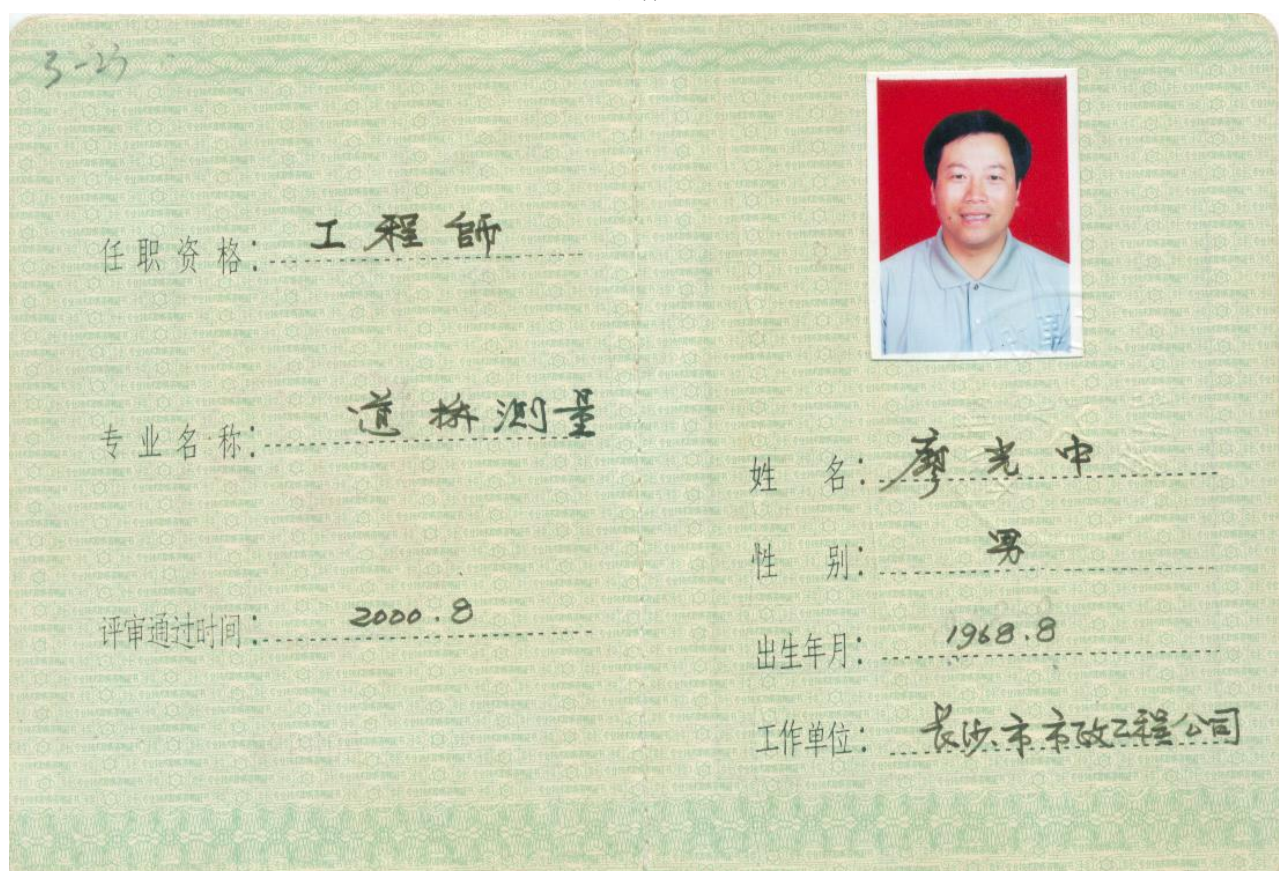 3-23
任职资格：工程師
专业名称：道桥测量
评审通过时间：2000.8
姓 名：廖光中
性 别：男
出生年月：1968.8
工作单位：长沙市市政工程公司